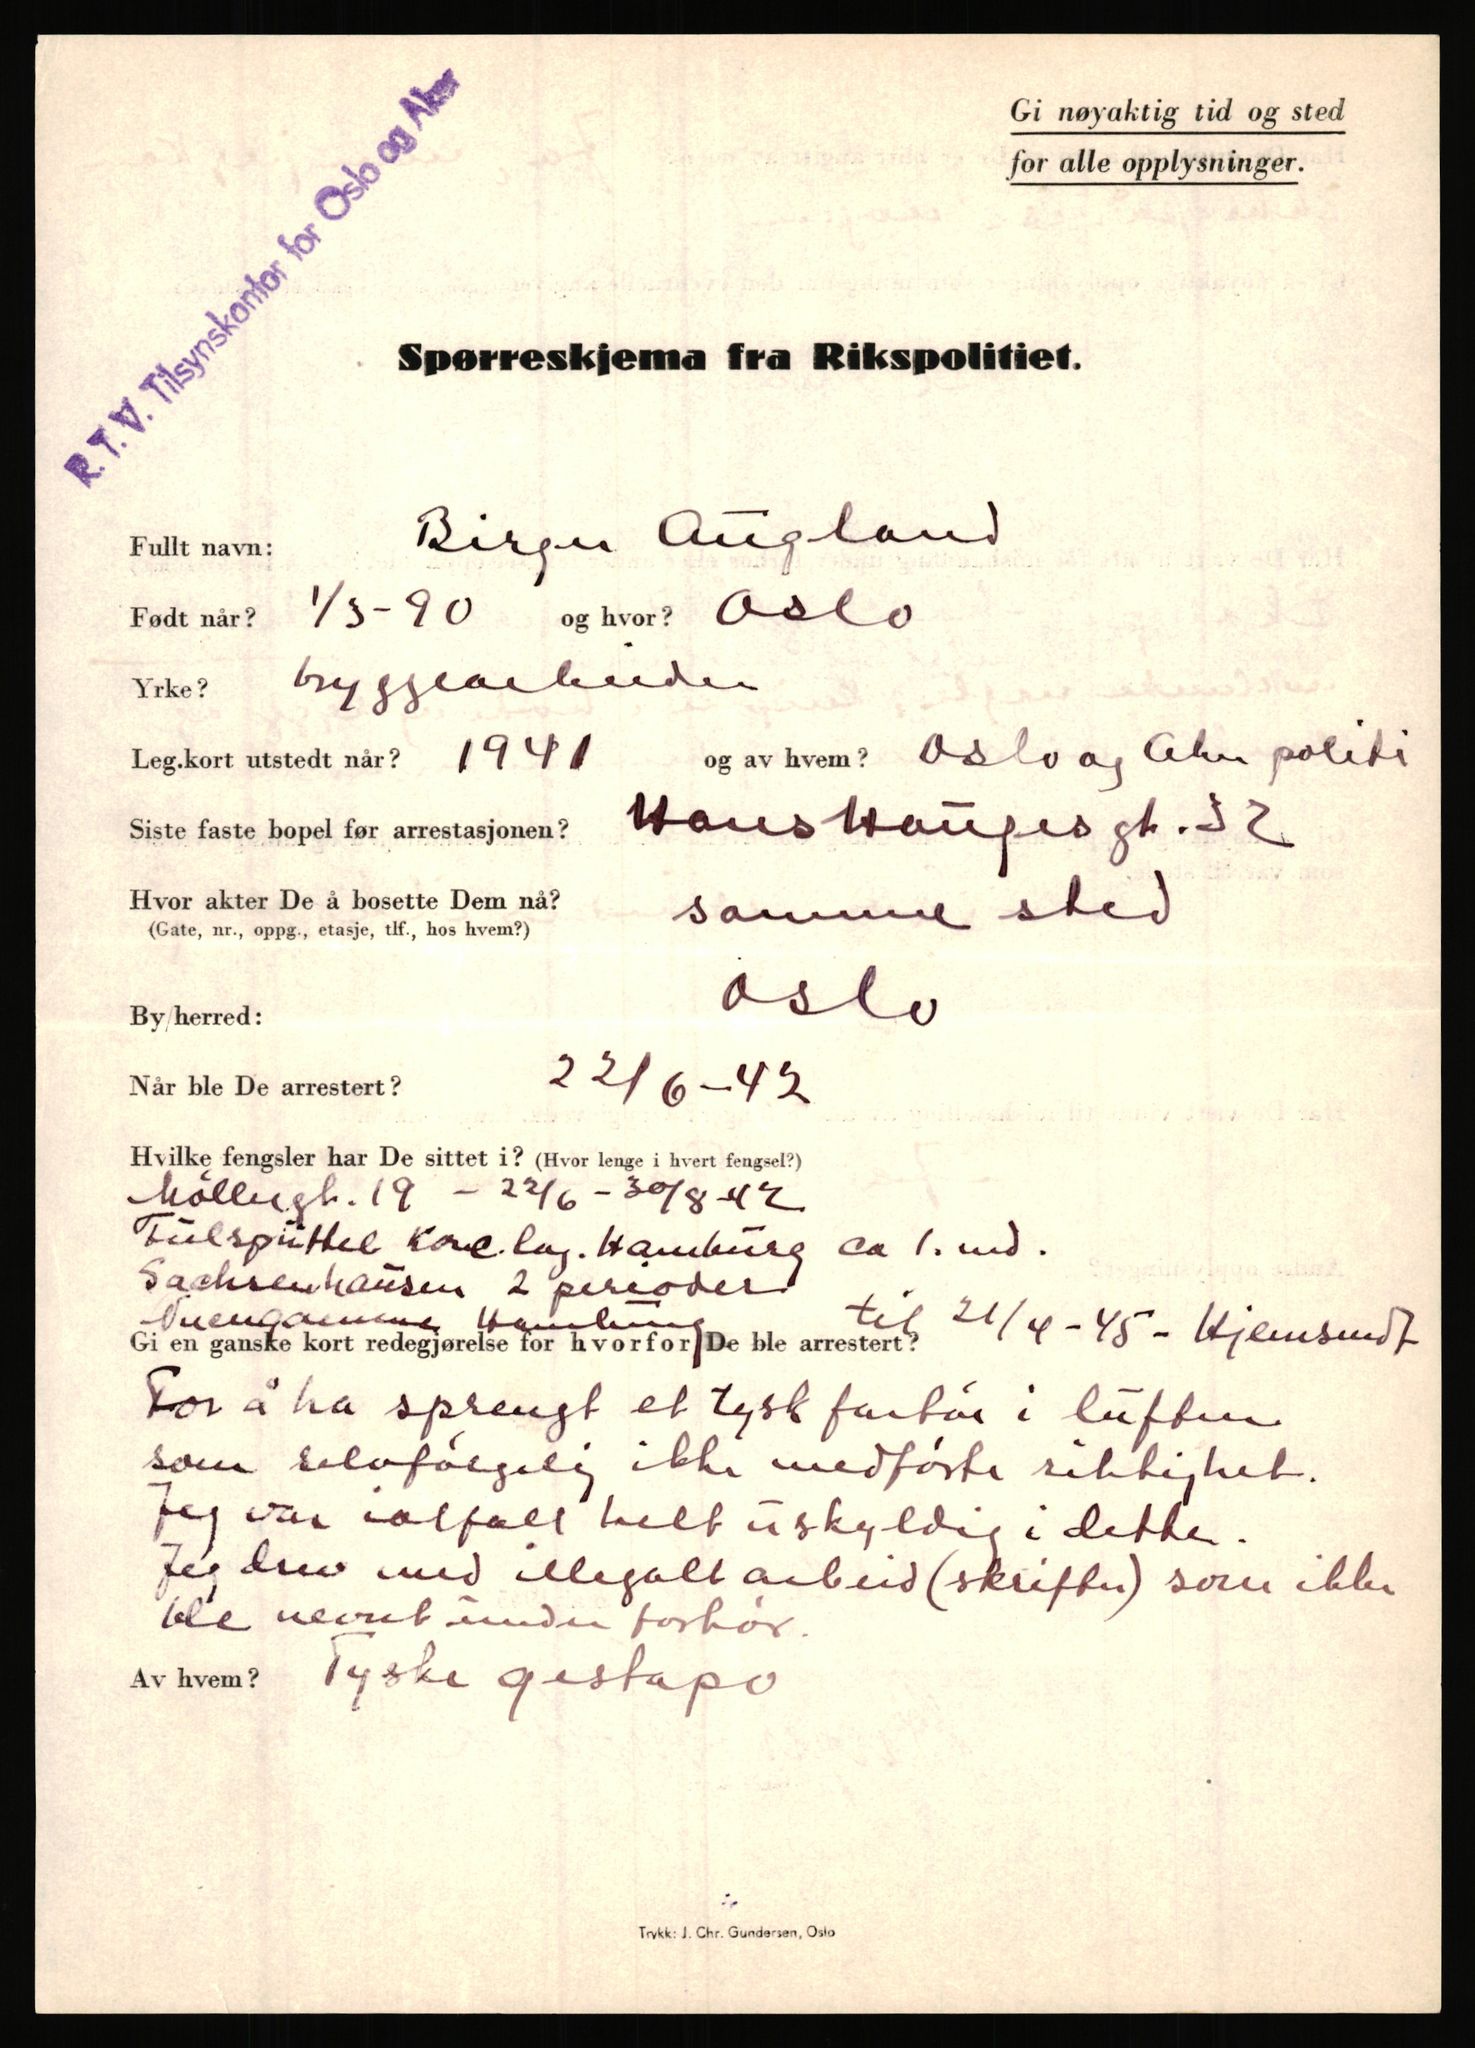 Gi nøyaktig tid og sted
for alle opplysninger.
R.T.V. Tilsynskontor for Oslo og Aker
Spørreskjema fra Rikspolitiet.
Fullt navn: Birger Augland
Født når? 1/3-90 og hvor? Oslo
Yrke? bryggearbeider
Leg.kort utstedt når? 1941 og av hvem? Oslo og Aker politi
Siste faste bopel før arrestasjonen? Hans Haugesgt. 32
Hvor akter De å bosette Dem nå? samme sted
(Gate, nr., oppg., etasje, tlf., hos hvem?)
By/herred: Oslo
Når ble De arrestert? 22/6-42
Hvilke fengsler har De sittet i? (Hvor lenge i hvert fengsel?)
Möllergt. 19 - 22/6-30/8-42
Fülspüttel Konc.lag. Hamburg ca 1. md.
Sachsenhausen 2 perioder
Nuengamme Hamburg til 21/4-45- Hjemsendt
Gi en ganske kort redegjørelse for hvorfor De ble arrestert?
For å ha sprengt et tysk fartöi i luften
som selvfölgelig ikke medförte riktighet.
Jeg var ialfall helt uskyldig i dette.
Jeg drev med illegalt arbeid (skrifter) som ikke
ble nevnt under forhör.
Av hvem? Tyske gestapo
Trykk: J. Chr. Gundersen, Oslo